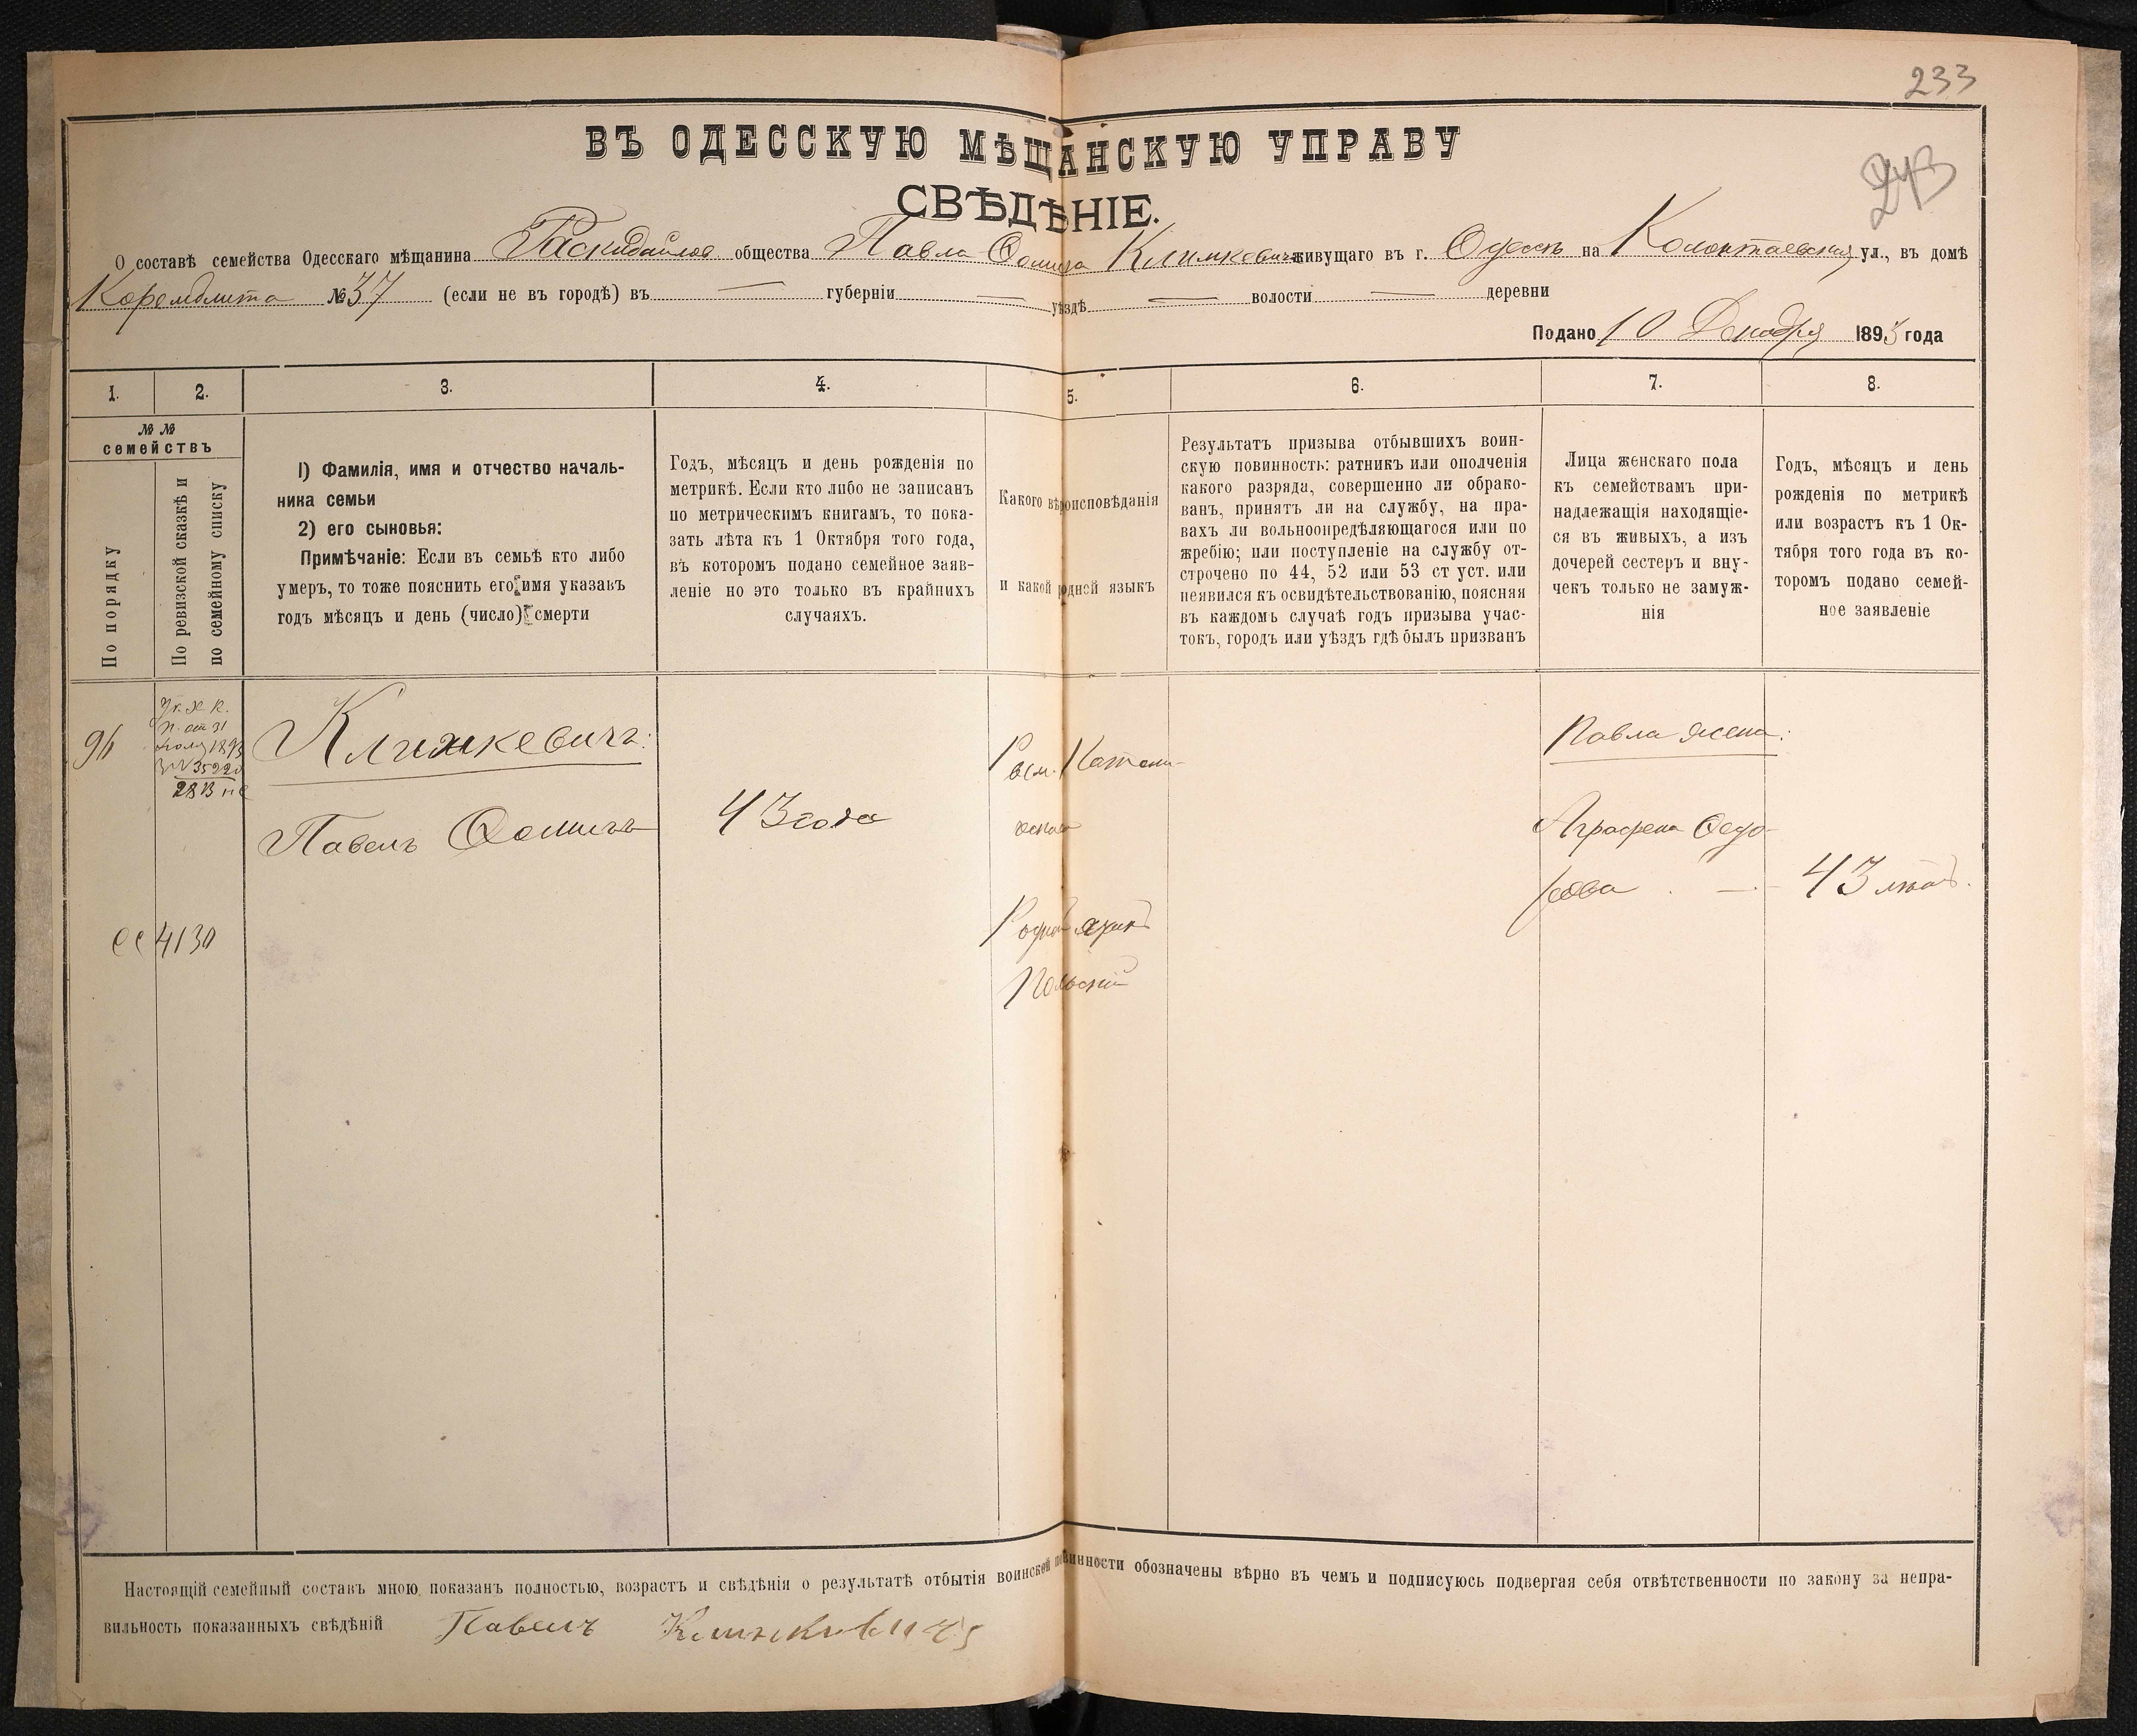 233
243
ВЪ ОДЕССКУЮ МѢЩАНСКУЮ УПРАВУ
СВѢДѢНІЕ.
О составѣ семейства Одесскаго мѣщанина Раскидайлов общества Павла Ѳомича Климкевича живущаго въ г. Одессѣ на Колонтаевской ул., въ домѣ
Корембл​ита № 37 (если не въ городѣ) въ — губерніи — уѣздѣ — волости — деревни
Подано 10 Декабря 1893 года
1. 2. 3. 4. 5. 6. 7. 8.
№ №
семействъ
По порядку
По ревизской сказкѣ и
по семейному списку
1) Фамилія, имя и отчество началь-
ника семьи
2) его сыновья:
Примѣчаніе: Если въ семьѣ кто либо
умеръ, то тоже пояснить его имя указавъ
годъ мѣсяцъ и день (число) смерти
Годъ, мѣсяцъ и день рожденія по
метрикѣ. Если кто либо не записанъ
по метрическимъ книгамъ, то пока-
зать лѣта къ 1 Октября того года,
въ которомъ подано семейное заяв-
леніе но это только въ крайнихъ
случаяхъ.
Какого вѣроисповѣданія
и какой родной языкъ
Результатъ призыва отбывшихъ воин-
скую повинность: ратникъ или ополченія
какого разряда, совершенно ли обрако-
ванъ, принятъ ли на службу, на пра-
вахъ ли вольноопредѣляющагося или по
жребію; или поступленіе на службу от-
строчено по 44, 52 или 53 ст уст. или
неявился къ освидѣтельствованію, поясняя
въ каждомъ случаѣ годъ призыва учас-
токъ, городъ или уѣздъ гдѣ былъ призванъ
Лица женскаго пола
къ семействамъ при-
надлежащія находящіе-
ся въ живыхъ, а изъ
дочерей сестеръ и вну-
чекъ только не замуж-
нія
Годъ, мѣсяцъ и день
рожденія по метрикѣ
или возрастъ къ 1 Ок-
тября того года въ ко-
торомъ подано семей-
ное заявленіе
Ук. Х. К.
П. от 31
1893
35220
96
Климкевичъ:
Павелъ Ѳомичъ
43 года
Римск. Католи-
ческаго
Родной языкъ
Польскій
Павла жена:
Аграфена Ѳедо-
рова —
43 лѣтъ.
4130
Настоящій семейный составъ мною показанъ полностью, возрастъ и свѣдѣнія о результатѣ отбытія воинской повинности обозначены вѣрно въ чемъ и подписуюсь подвергая себя отвѣтственности по закону за непра-
вильность показанныхъ свѣдѣній Павелъ Климкевичъ